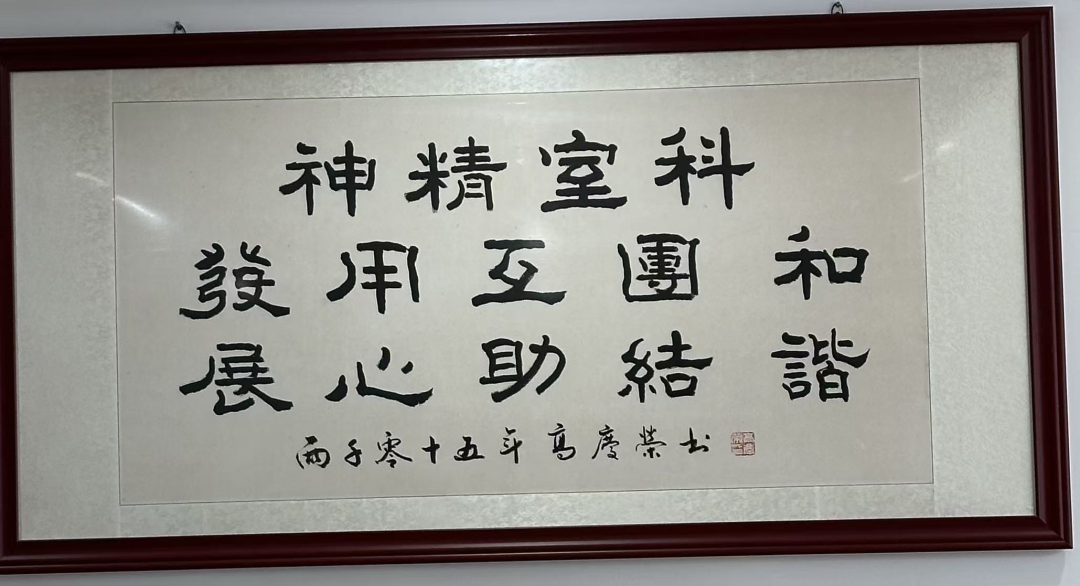 科室精神
和諧
團結
互助
用心
發展
兩千零十五年高慶榮书